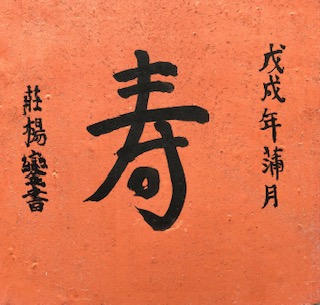 戊戌年蒲月
寿
莊楊鑾書